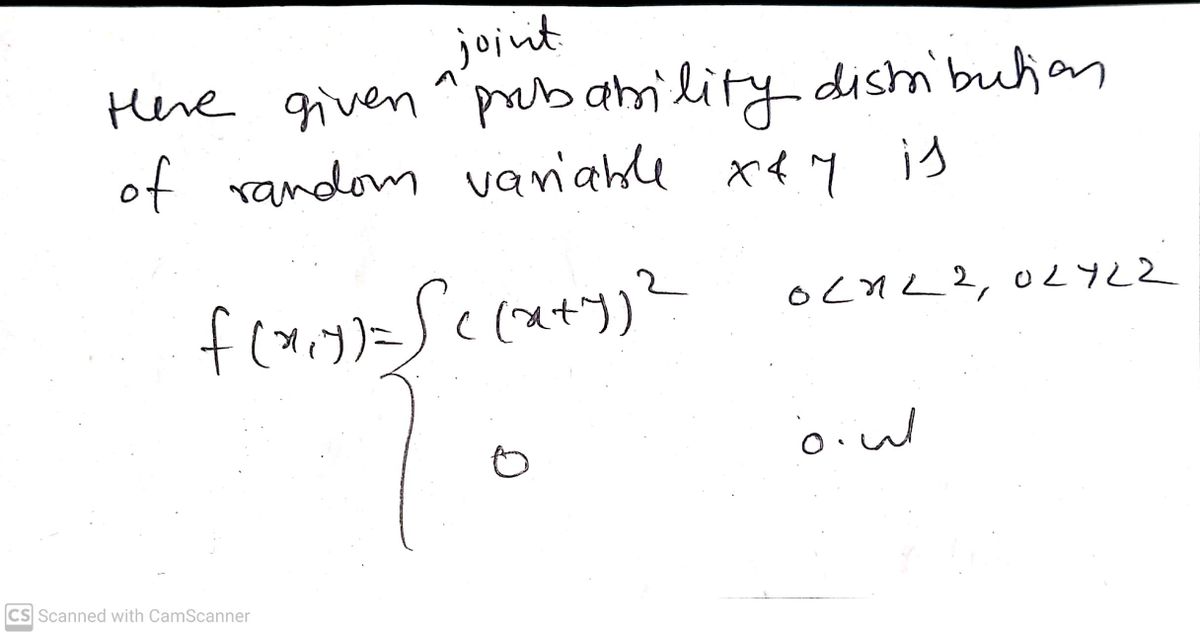 Here given ^joint probability distribution
of random variable x & y is
f(x,y)={ c(x+y)² 0<x<2, 0<y<2
0 o.w
CS Scanned with CamScanner